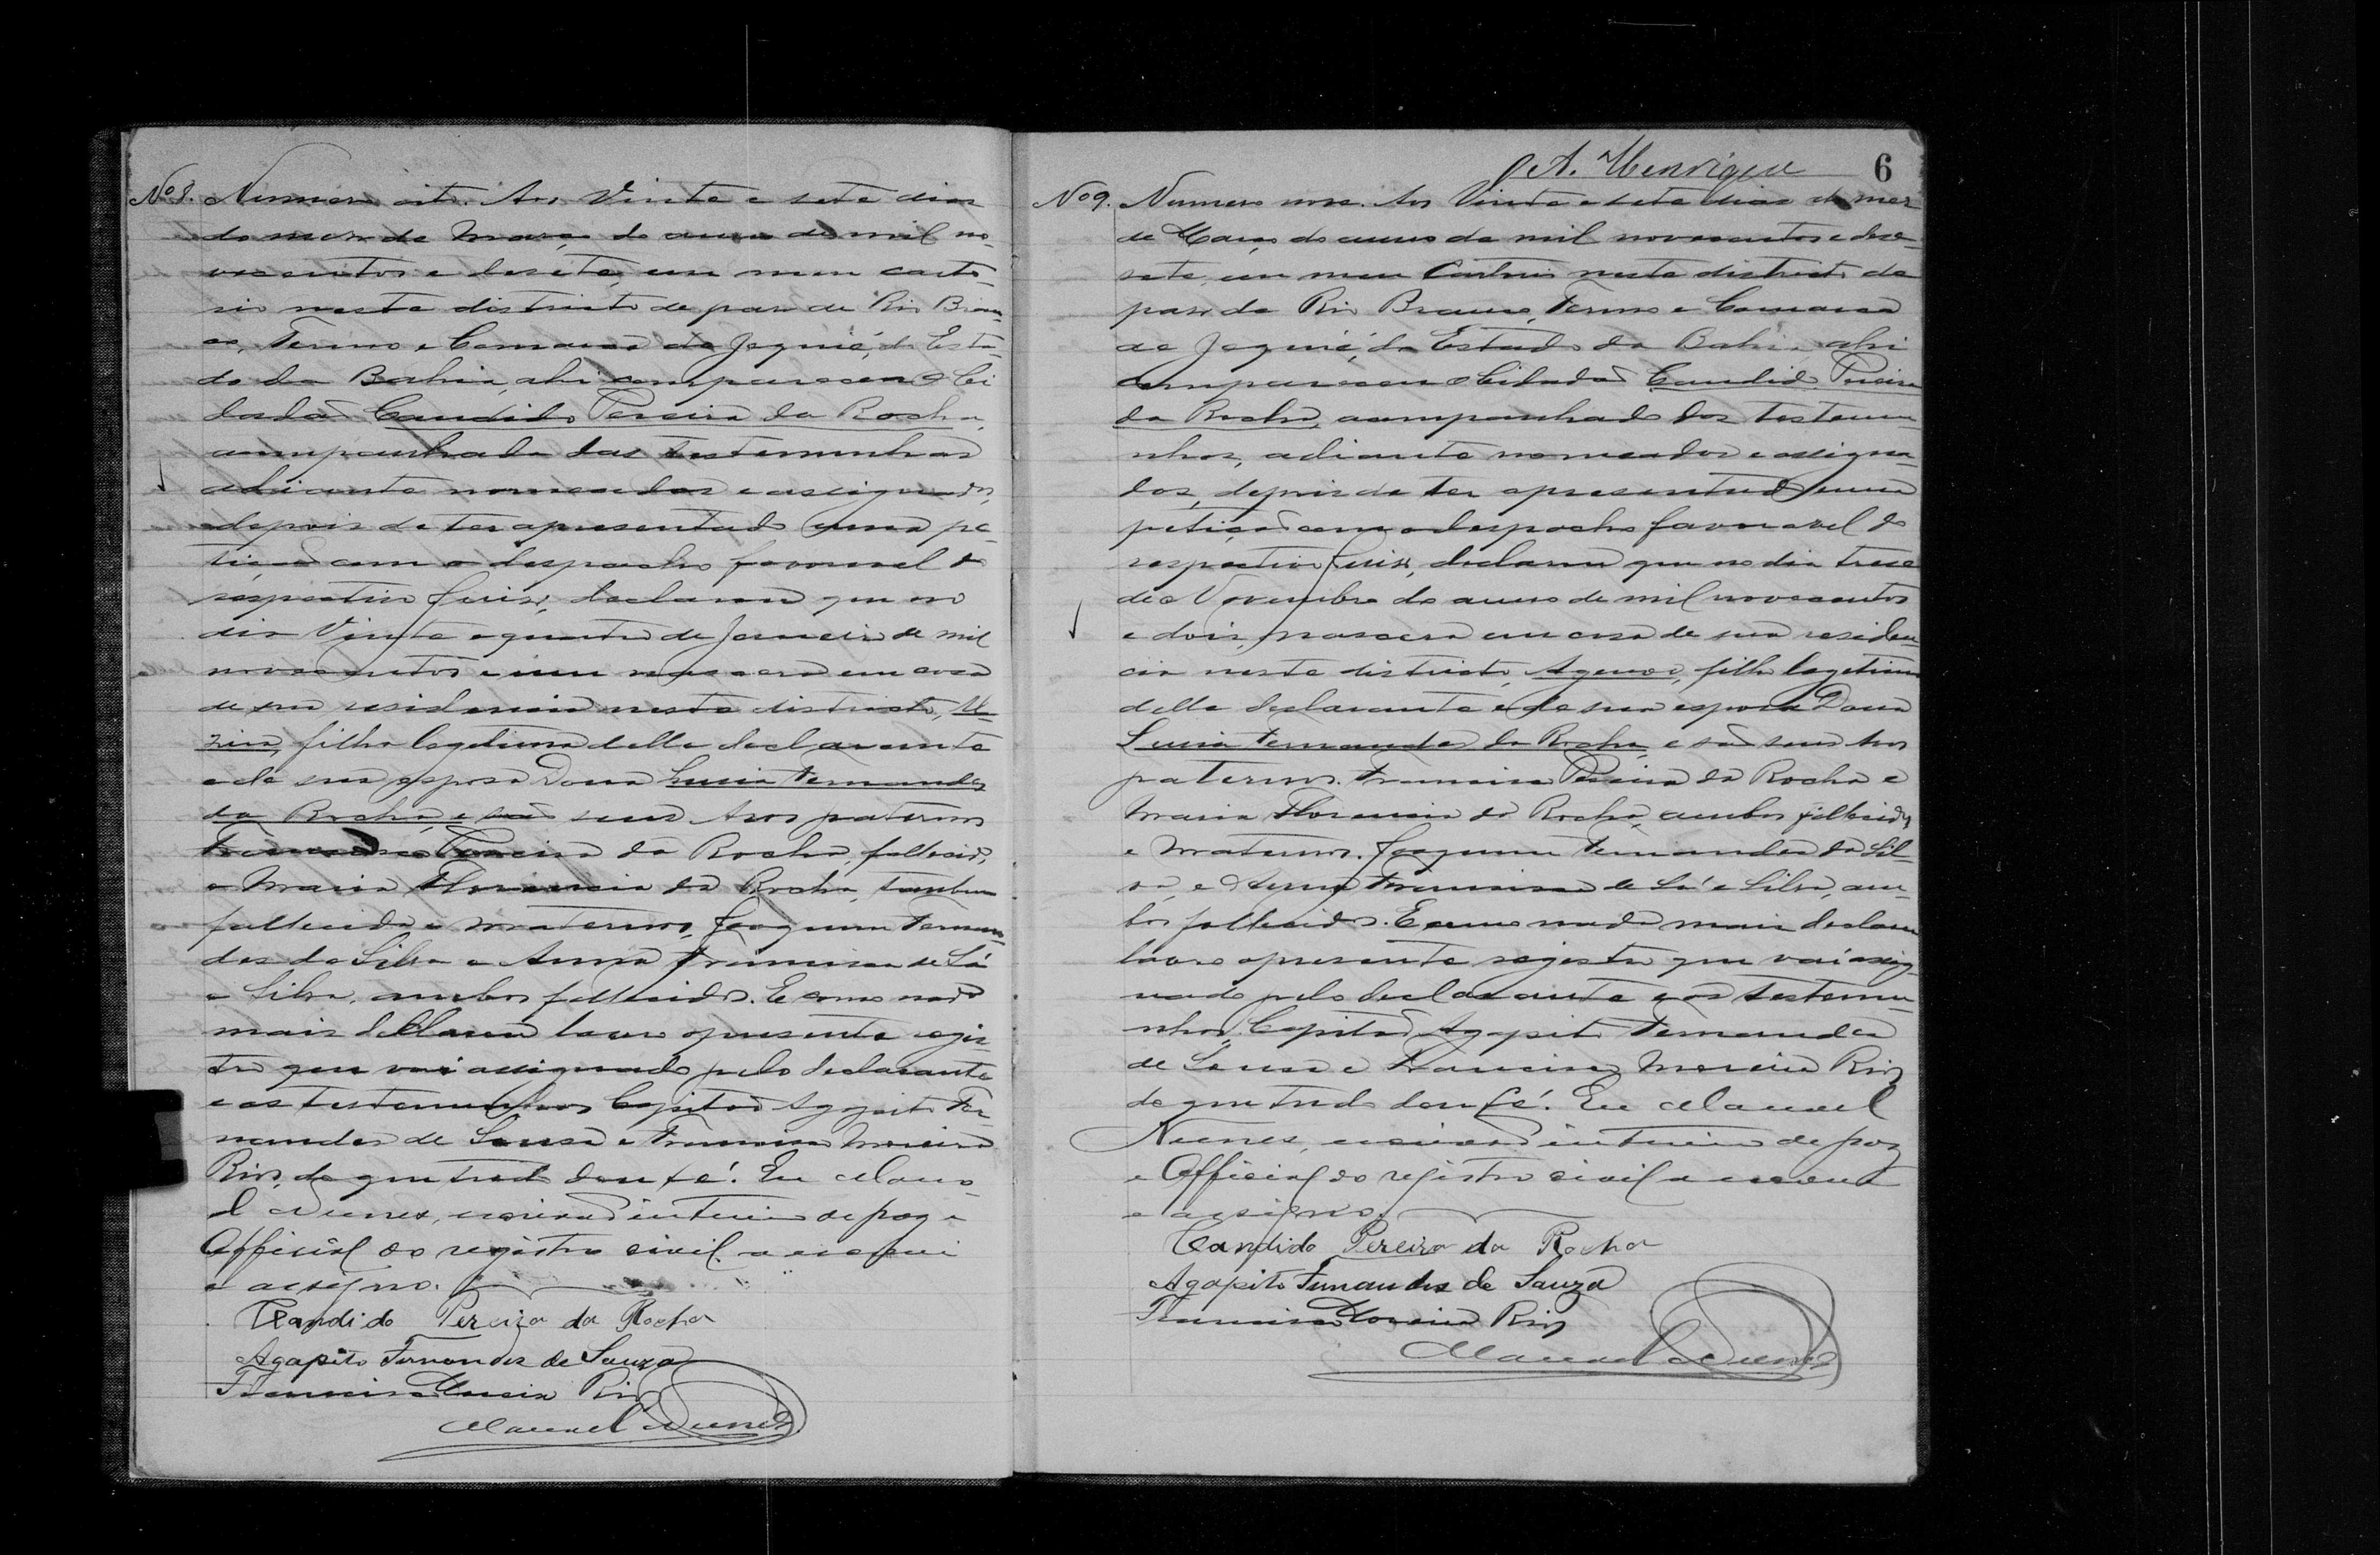 Nº 8. Numero oito. Aos Vinte e sete dias
do mez de Março do anno de mil no-
vecentos e desete, em meu carto-
rio neste districto de paz de Rio Bran-
co, Termo e Comarca de Jequié, do Esta-
do da Bahia, ahi compareceu o Ci
dadaõ Candido Pereira da Rocha,
acompanhado das testemunhas
adiante nomeadas e assignados,
depois de ter apresentado uma pe-
tiçaõ com o despacho favoravel do
respectivo Juiz, declarou que no
dia Vinte e quatro de Janeiro de mil
novecentos e um nascera em casa
de sua residencia neste districto,
filha legetima delle declarante
e de sua esposa Dona Lucia Fernandes
da Rocha, e saõ seus Avos paternos
Francisco Pereira da Rocha, fallecido,
e Maria Florencia da Rocha, tambem
fallecida e maternos, Joaquim Fernan-
des da Silva e Anna Francisca de Sá
e Silva, ambos fallecidos. E como nada
mais declarou lavro o presente regis-
tro que vai assignado pelo declarante
e as testemunhas Capitaõ Agapito Fer-
nandes de Sousa e Francisco Moreira
Rios, do que tudo dou fé. Eu Mano-
el Nunes, escrivaõ interino de paz e
Official do registro civil o escrevi
e assigno.
Candido Pereira da Rocha
Agapito Fernandes de Souza
Francisco Moreira Rios
Manoel Nunes
A. Henriques 6
Nº 9. Numero nove. Aos Vinte e sete dias do mez
de Março do anno de mil novecentos e dese-
sete, em meu Cartorio neste districto de
paz de Rio Branco, Termo e Comarca
de Jequié, do Estado da Bahia ahi
compareceu o Cidadaõ Candido Pereira
da Rocha, acompanhado das testemu-
nhas, adiante nomeados e assigna-
dos, depois de ter apresentado uma
petiçaõ com o despacho favoravel do
respectivo Juiz, declarou que no dia trese
de Novembro do anno de mil novecentos
e dois, nascera em casa de sua residen-
cia neste districto, Agenor, filho legetimo
delle declarante e de sua esposa Dona
Lucia Fernandes da Rocha, e saõ seus Avos
paternos. Francisco Pereira da Rocha e
Maria Florencia da Rocha, ambos fallecidos
e Maternos. Joaquim Fernandes da Sil-
va, e Anna Francisca de Sá e Silva, am-
bos fallecidos. E como nada mais declarou
lavro o presente registro que vai assig-
nado pelo declarante e as testemu-
nhas, Capitaõ Agapito Fernandes
de Sousa e Francisco Moreira Rios
do que tudo dou fé. Eu Manoel
Nunes, escrivaõ interino de paz
e Official do registro civil o escrevi
e assigno.
Candido Pereira da Rocha
Agapito Fernandes de Souza
Francisco Moreira Rios
Manoel Nunes